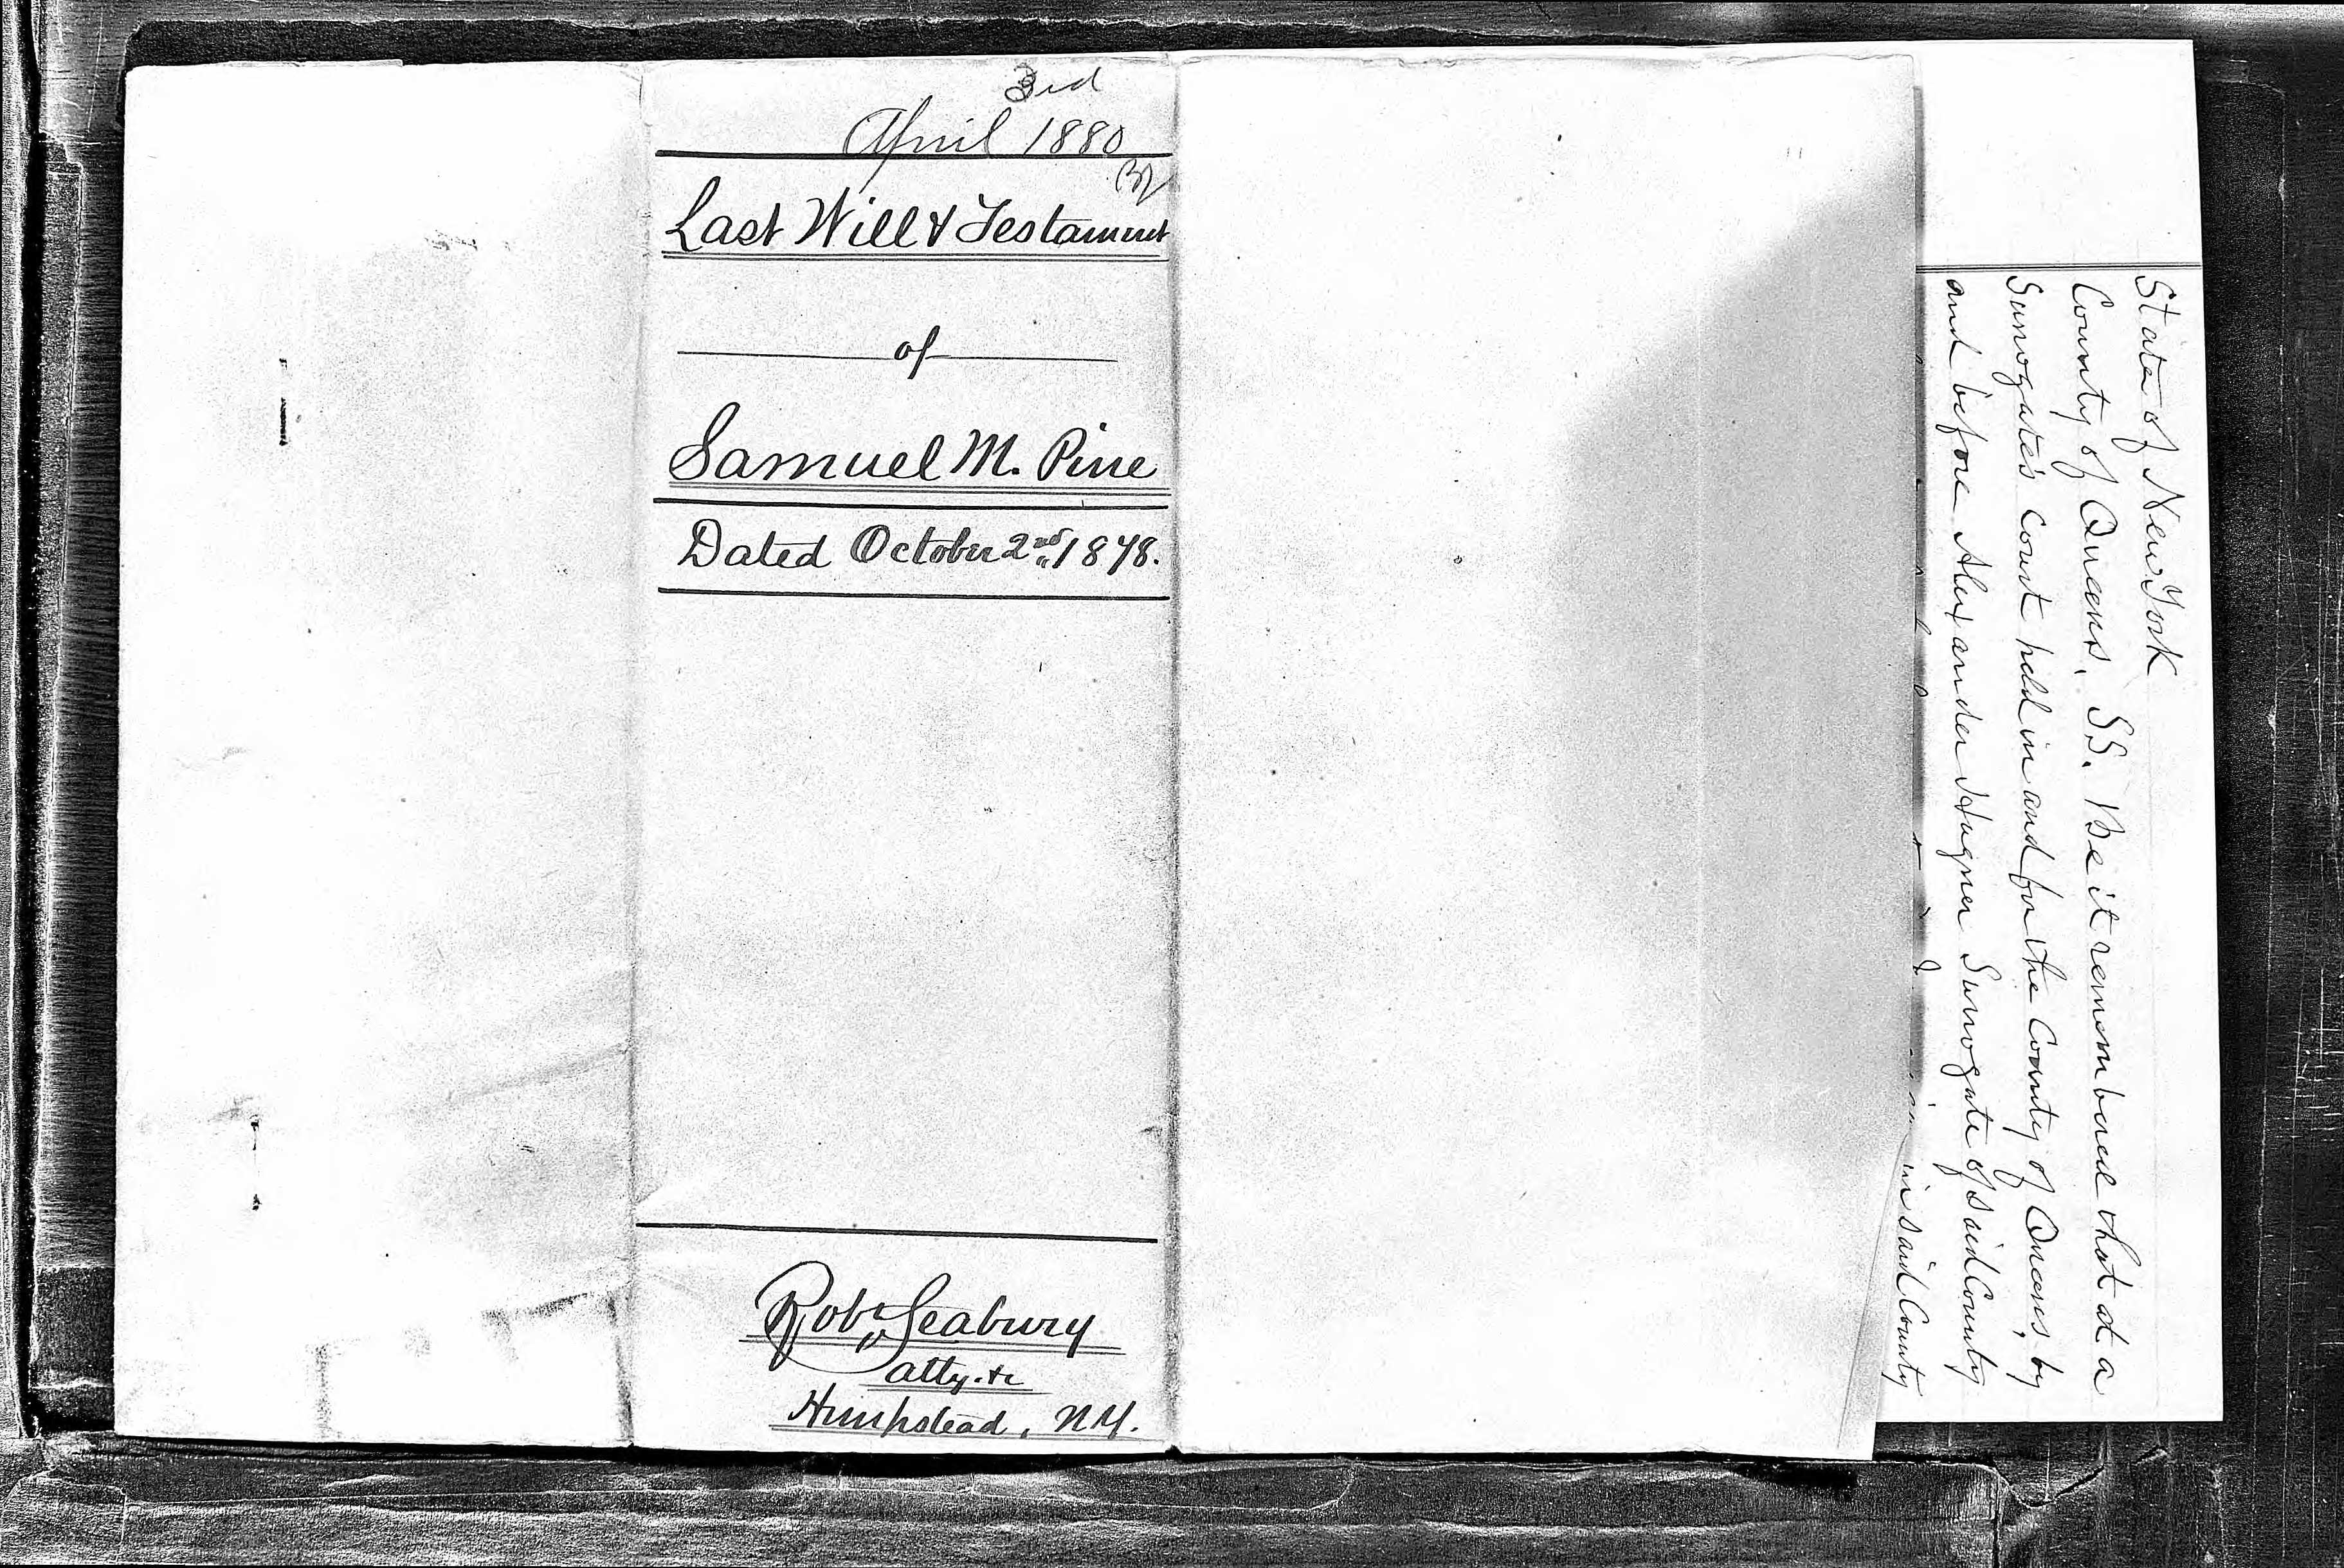 3rd
April 1880
Last Will & Testament
of
Samuel M. Pine
Dated October 2nd 1878.
Robt Seabury
atty. &c
Hempstead, N.Y.
State of New York
County of Queens, SS. Be it remembered that at a
Surrogate's Court held in and for the County of Queens, by
and before Alexander Hagner Surrogate of said County
in said County